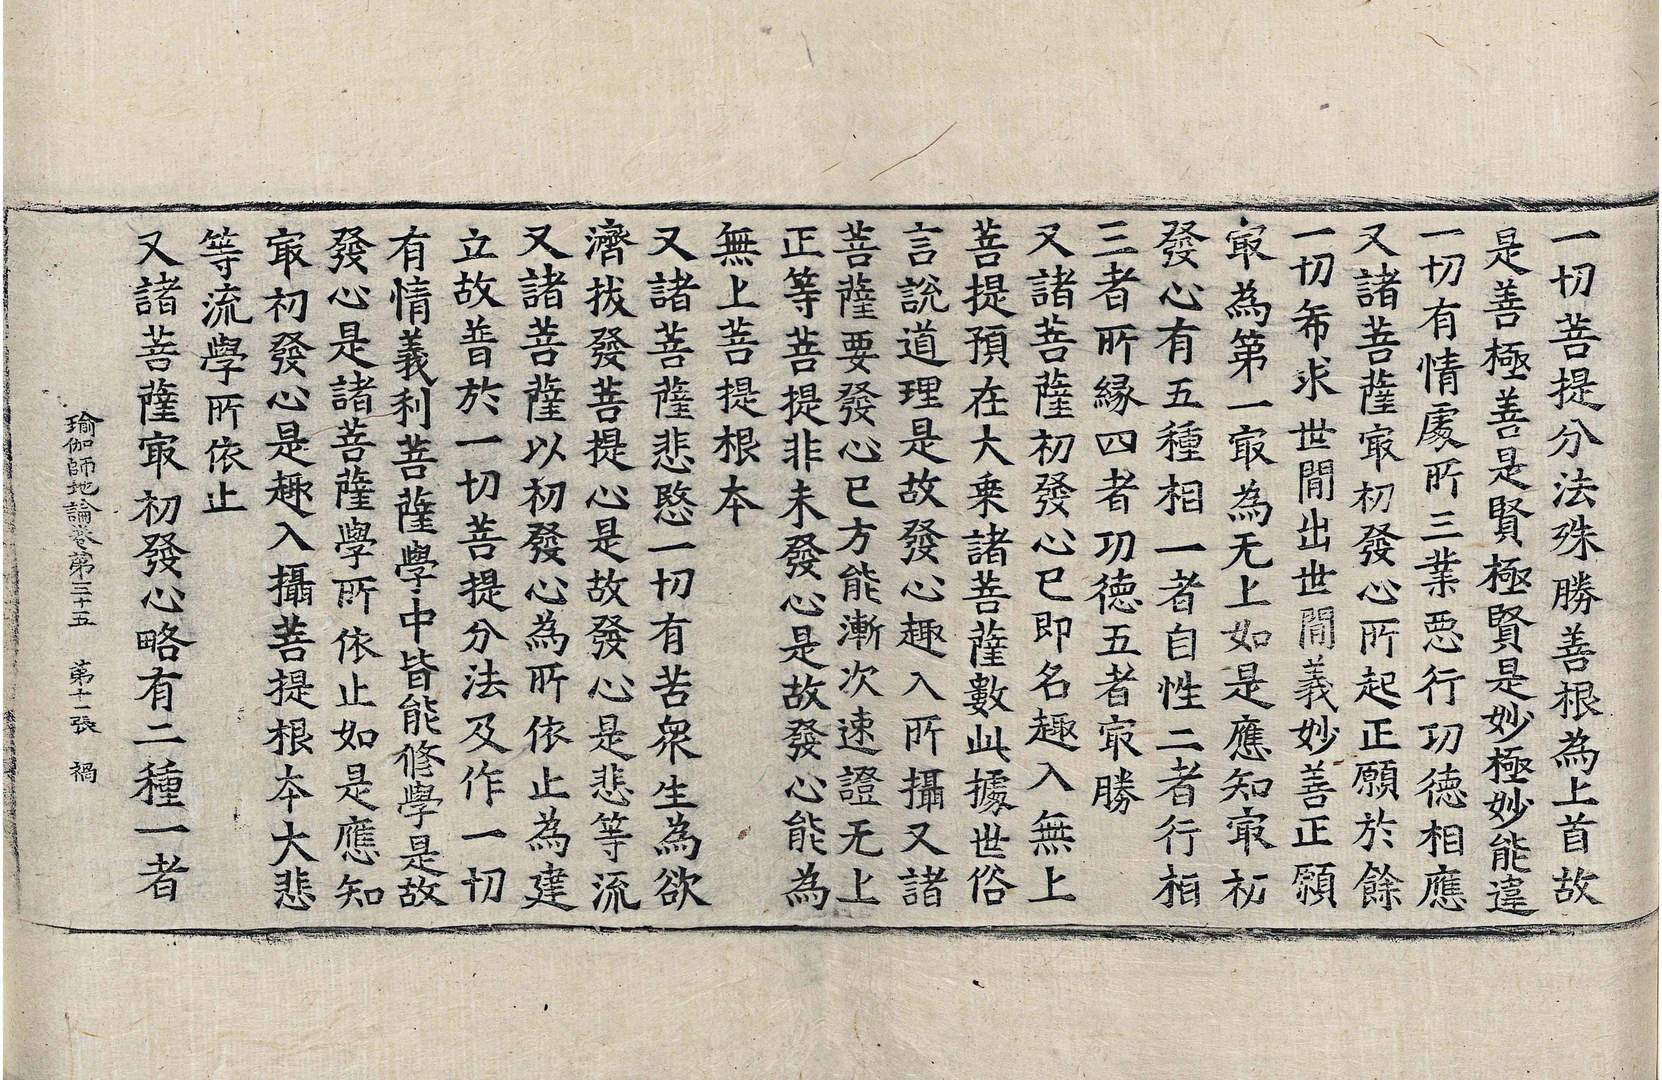 一切菩提分法殊勝善根為上首故
是善極善是賢極賢是妙極妙能違
一切有情處所三業惡行功德相應
又諸菩薩㝡初發心所起正願於餘
一切希求世間出世間義妙善正願
㝡為第一㝡為无上如是應知㝡初
發心有五種相一者自性二者行相
三者所緣四者功德五者㝡勝
又諸菩薩初發心已即名趣入無上
菩提預在大乗諸菩薩數此據世俗
言說道理是故發心趣入所攝又諸
菩薩要發心已方能漸次速證无上
正等菩提非未發心是故發心能為
無上菩提根本
又諸菩薩悲愍一切有苦衆生為欲
濟拔發菩提心是故發心是悲等流
又諸菩薩以初發心為所依止為建
立故普於一切菩提分法及作一切
有情義利菩薩學中皆能修學是故
發心是諸菩薩學所依止如是應知
㝡初發心是趣入攝菩提根本大悲
等流學所依止
又諸菩薩㝡初發心略有二種一者
瑜伽師地論卷第三十五　第十一張　禍